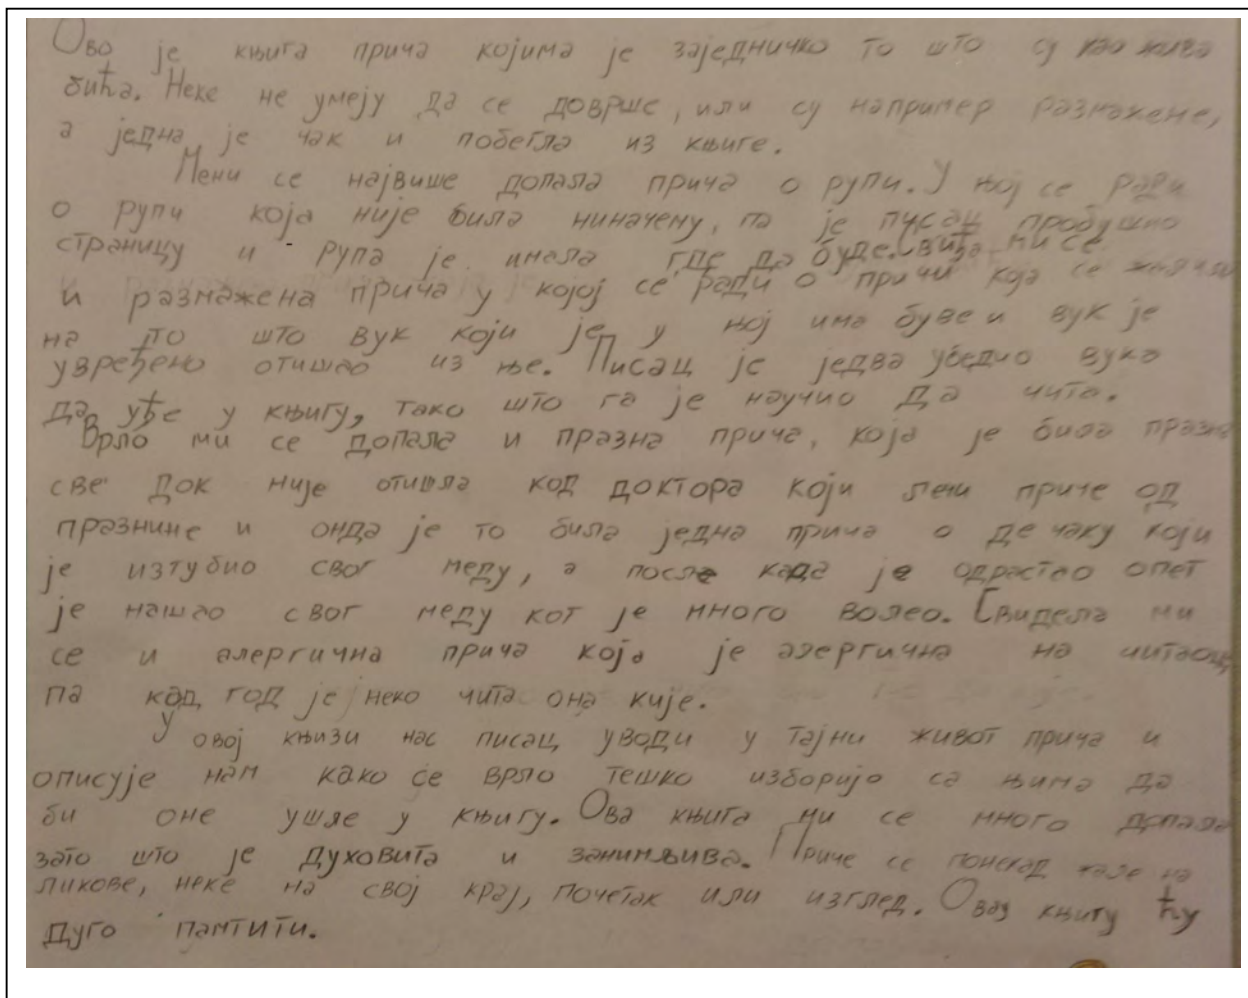 Ово је књига прича којима је заједничко то што су као жива
бића. Неке не умеју да се доврше, или су например размажене,
а једна је чак и побегла из књиге.
Мени се највише допала прича о рупи. У њој се ради
о рупи која није била ниначему, па је писац пробушио
страницу и рупа је имала где да буде. Свиђа ми се
и размажена прича у којој се ради о причи која се жалила
на то што вук који је у њој има буве и вук је
увређено отишао из ње. Писац је једва убедио вука
да уђе у књигу, тако што га је научио да чита.
Врло ми се допала и празна прича, која је била празна
све док није отишла код доктора који лечи приче од
празнине и онда је то била једна прича о дечаку који
је изгубио свог меду, а после када је одрастао опет
је нашао свог меду ког је много волео. Свидела ми
се и алергична прича која је алергична на читаоце,
па кад год је неко чита она кије.
У овој књизи нас писац уводи у тајни живот прича и
описује нам како се врло тешко изборијо са њима да
би оне ушле у књигу. Ова књига ми се много допала
зато што је духовита и занимљива. Приче се понекад жале на
ликове, неке на свој крај, почетак или изглед. Овау књигу ћу
дуго памтити.